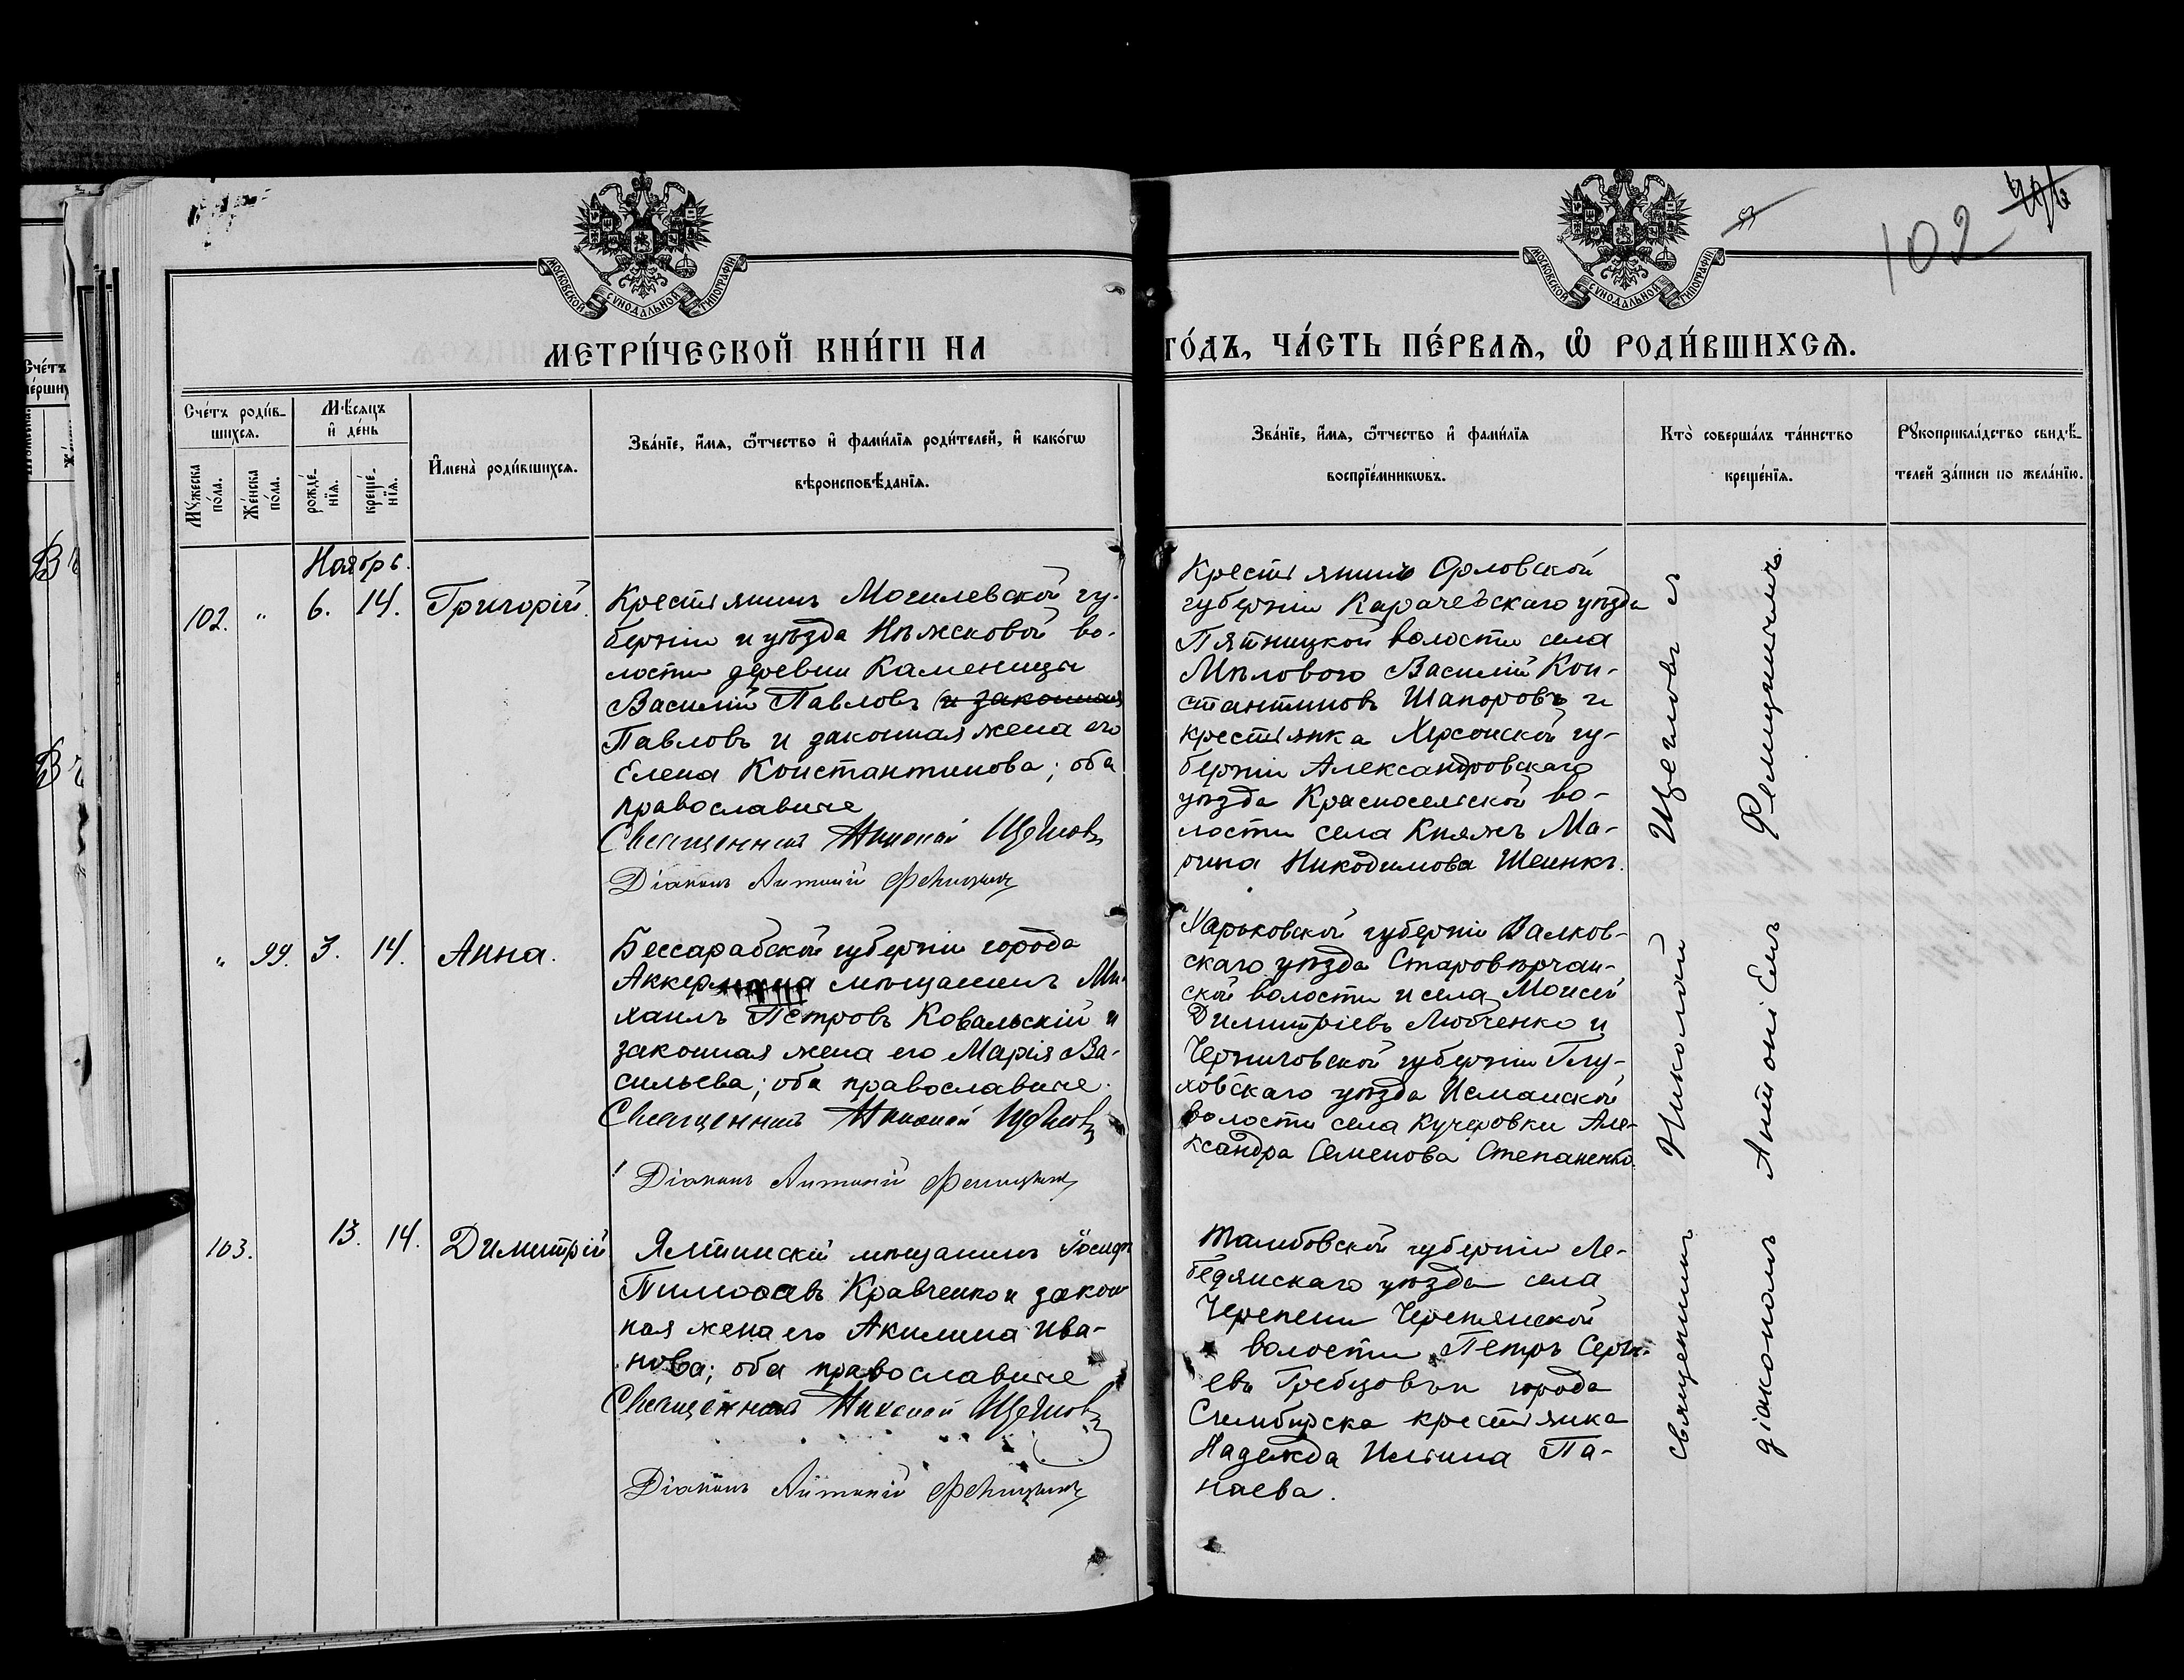 МОСКОВСКОЙ СѴНОДАЛЬНОЙ ТИПОГРАФІИ
МОСКОВСКОЙ СѴНОДАЛЬНОЙ ТИПОГРАФІИ
102
МЕТРИ́ЧЕСКОЙ КНИ́ГИ НА ГО́ДЪ, ЧА́СТЬ ПЕ́РВАѦ, Ѡ҆ РОДИ́ВШИХСѦ.
Сче́тъ роди́в-
шихсѧ.
Мꙋ́жеска по́ла.
Же́нска по́ла.
Мѣ́сѧцъ
и҆ де́нь
рожде́-
нїѧ.
креще́-
нїѧ.
И҆мена̀ роди́вшихсѧ.
Зва́нїе, и҆́мѧ, ѻ҆́тчество и҆ фами́лїѧ роди́телей, и҆ како́гѡ
вѣроисповѣ́данїѧ.
Зва́нїе, и҆́мѧ, ѻ҆́тчество и҆ фами́лїѧ
воспрїе́мникѡвъ.
Кто̀ соверша́лъ та́инство
креще́нїѧ.
Рꙋкоприкла́дство свидѣ́-
телей за́писи по жела́нїю.
Ноябрь.
102. " 6. 14. Григорій.
Крестьянинъ Могилевской гу-
берніи и уѣзда Нѣжсковой во-
лости деревни Каменицы
Василій Павловъ (и законная
Павловъ и законная жена его
Елена Константинова; оба
православные
Священникъ Николай Щегловъ
Діаконъ Антоній Фелицинъ
Крестьянинъ Орловской
губерніи Карачевскаго уѣзда
Пятницкой волости села
Мѣлового Василій Кон-
стантиновъ Шапоровъ и
крестьянка Херсонской гу-
берніи Александровскаго
уѣзда Красносельской во-
лости села Княжъ Ма-
рина Никодимова Шеинкъ.
" 99. 3. 14. Анна.
Бессарабской губерніи города
Аккермана мѣщанинъ Ми-
хаилъ Петровъ Ковальскій и
законная жена его Марія Ва-
сильева; оба православные.
Священникъ Николай Щегловъ
Діаконъ Антоній Фелицинъ
Харьковской губерніи Валков-
скаго уѣзда Старовѣрчан-
ской волости и села Моисей
Димитріевъ Любченко и
Черниговской губерніи Глу-
ховскаго уѣзда Исманской
волости села Кучеровки Але-
ксандра Семенова Степаненко.
103. 13. 14. Димитрій
Ялтинскій мѣщанинъ Іосифъ
Тимоѳеевъ Кравченко и закон
ная жена его Акилина Ива-
нова; оба православные
Священникъ Николай Щегловъ
Діаконъ Антоній Фелицинъ
Тамбовской губерніи Ле-
бедянскаго уѣзда села
Черепени Черепянской
волости Петръ Сергѣ-
евъ Гребцовъ и города
Симбирска крестьянка
Надежда Ильина Па-
наева.
священникъ Николай Щегловъ съ
діакономъ Антоніемъ Фелицинымъ